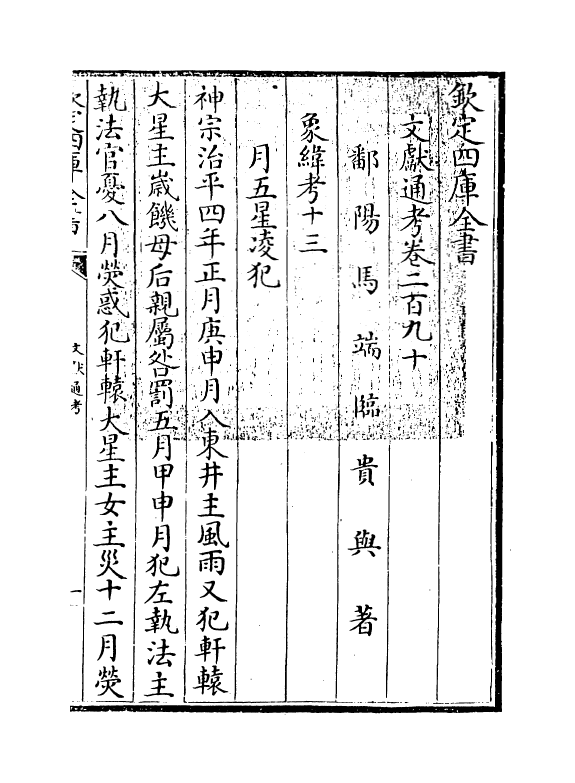 欽定四庫全書
文獻通考卷二百九十
鄱陽馬端臨貴與著
象緯考十三
月五星凌犯
神宗治平四年正月庚申月入東井主風雨又犯軒轅
大星主嵗饑母后親屬咎罰五月甲申月犯左執法主
執法官憂八月熒惑犯軒轅大星主女主災十二月熒
欽定四庫全書
文獻通考
一